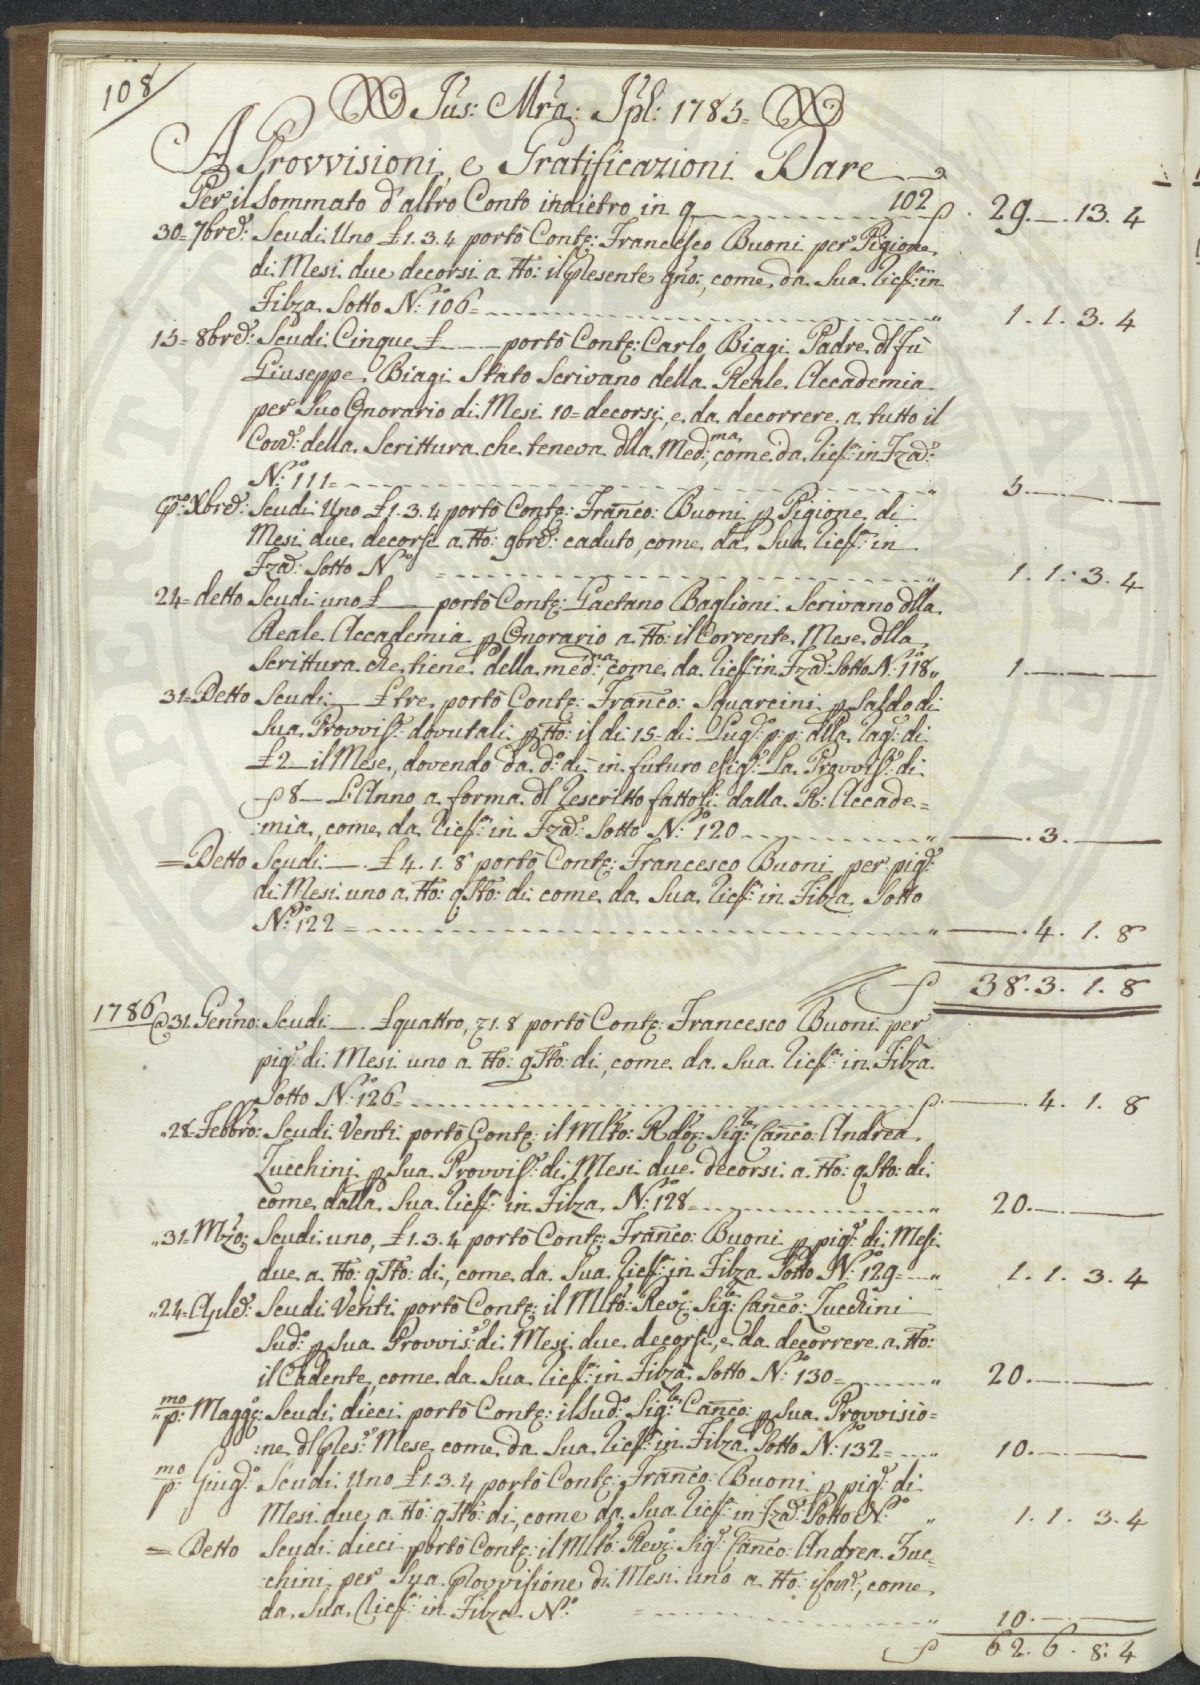 108
Jus: Mrã: Jpl: 1785=
A Provvisioni, e Gratificazioni Dare
Per il Sommato d'altro Conto indietro in q 102 29. — 13. 4
30=7bre: Scudi Uno £1.3.4 portò Contẽ: Francesco Buoni per Pigione
di Mesi due decorsi a tto: il presente gno:, come da Sua Ricevta: in
Filza Sotto N.º 106= 1. 1. 3. 4
15=8bre: Scudi Cinque £ — portò Contẽ: Carlo Biagi Padre dl fù
Giuseppe Biagi Stato Scrivano della Reale Accademia
per Suo Onorario di Mesi 10= decorsi, e da decorrere a tutto il
della Scrittura che teneva dlla Med:ma, come da in Fza:
N.º 111= 5. — —
p:mo Xbre: Scudi Uno £1.3.4 portò Contẽ: Franco: Buoni p Pigione di
Mesi due decorsi a tto: 9bre: caduto, come da Sua in
Fza: Sotto N.º 1. 1. 3. 4
24= detto Scudi uno £ — portò Contẽ: Gaetano Baglioni Scrivano dlla
Reale Accademia p Onorario a tto: il Corrente Mese dlla
Scrittura che tiene della med:ma, come da in Fza: Sotto N.º 118 1. — —
31= Detto Scudi — £ tre portò Contẽ: Franco: Squarcini p Saldo di
Sua Provvis: dovutali p tto: il dì 15 di Lug: p: p: dlla Rag: di
£2 — il Mese, dovendo da dº: dì in futuro esig: La Provvis: di
8 — L'Anno a forma dl Rescritto fattoli dalla R: Accade=
=mia, come da in Fza: Sotto N.º 120 — . 3. —
= Detto Scudi — £4.1.8 portò Contẽ: Francesco Buoni per pig:
di Mesi uno a tto: qsto: dì come da Sua in Filza Sotto
N.º 122= — . 4. 1. 8
38. 3. 1. 8
1786
31. Genno: Scudi — £ quattro, 1.8 portò Contẽ: Francesco Buoni per
pig: di Mesi uno a tto: qsto: dì, come da Sua in Filza
Sotto N.º 126= — 4. 1. 8
28= Febbro: Scudi Venti portò Contẽ: il Mlto: Rdo: Sig: Canco: Andrea
Zucchini p Sua Provvis: di Mesi due decorsi a tto: qsto: dì
come dalla Sua in Filza N.º 128= 20. — —
31= Mzo: Scudi uno, £1.3.4 portò Contẽ: Franco: Buoni p pig: di Mesi
due a tto: qsto: dì, come da Sua in Filza Sotto N.º 129= 1. 1. 3. 4
24= Aple: Scudi Venti portò Contẽ: il Mlto: Rev: Sig: Canco: Zucchini
Sud: p Sua Provvis: di Mesi due decorsi, e da decorrere a tto:
il Cadente, come da Sua in Filza Sotto N.º 130= 20. — —
p:mo Magg: Scudi dieci portò Contẽ: il Sud: Sig: Canco: p Sua Provvisio=
=ne dl Pres: Mese, come da Sua in Filza Sotto N.º 132= 10. — —
p:mo Giug: Scudi Uno £1.3.4 portò Contẽ: Franco: Buoni p pig: di
Mesi due a tto: qsto: dì, come da Sua in Fza: Sotto N.º 1. 1. 3. 4
= Detto Scudi dieci portò Contẽ: il Mlto: Rev: Sig: Canco: Andrea Zuc=
=chini per Sua Provvisione di Mesi uno a tto: come
da Sua in Filza N.º 10. — —
62. 6. 8. 4